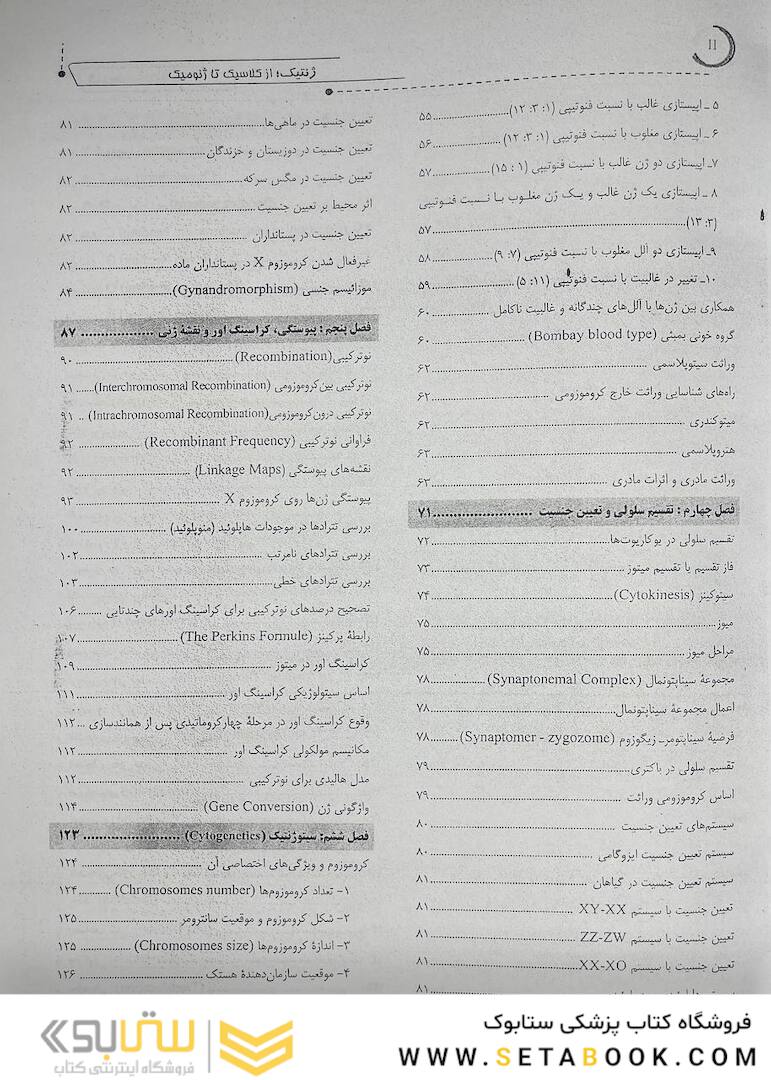 II
ژنتیک؛ از کلاسیک تا ژنومیک
۵ ـ اپیستازی غالب با نسبت فنوتیپی (۱: ۳: ۱۲)...۵۵
۶ ـ اپیستازی مغلوب با نسبت فنوتیپی (۱: ۳: ۱۲)...۵۶
۷ـ اپیستازی دو ژن غالب با نسبت فنوتیپی (۱ : ۱۵)...۵۷
۸ ـ اپیستازی یک ژن غالب و یک ژن مغلوب با نسبت فنوتیپی
(۳: ۱۳)...۵۷
۹ـ اپیستازی دو آلل مغلوب با نسبت فنوتیپی (۷: ۹)...۵۸
۱۰ـ تغییر در غالبیت با نسبت فنوتیپی (۱۱: ۵)...۵۹
همکاری بین ژن‌ها یا آلل‌های چندگانه و غالبیت ناکامل...۶۰
گروه خونی بمبئی (Bombay blood type)...۶۰
وراثت سیتوپلاسمی...۶۲
راه‌های شناسایی وراثت خارج کروموزومی...۶۲
میتوکندری...۶۲
هتروپلاسمی...۶۳
وراثت مادری و اثرات مادری...۶۳
فصل چهارم : تقسیم سلولی و تعیین جنسیت...۷۱
تقسیم سلولی در یوکاریوت‌ها...۷۲
فاز تقسیم یا تقسیم میتوز...۷۳
سیتوکینز (Cytokinesis)...۷۴
میوز...۷۵
مراحل میوز...۷۵
مجموعهٔ سیناپتونمال (Synaptonemal Complex)...۷۸
اعمال مجموعهٔ سیناپتونمال...۷۸
فرضیهٔ سیناپتومر ـ زیگوزوم (Synaptomer - zygozome)...۷۸
تقسیم سلولی در باکتری...۷۹
اساس کروموزومی وراثت...۷۹
سیستم‌های تعیین جنسیت...۸۰
سیستم تعیین جنسیت ایزوگامی...۸۰
سیستم تعیین جنسیت در گیاهان...۸۱
تعیین جنسیت با سیستم XY-XX...۸۱
تعیین جنسیت با سیستم ZZ-ZW...۸۱
تعیین جنسیت با سیستم XX-XO...۸۱
...۸۱
تعیین جنسیت در ماهی‌ها...۸۱
تعیین جنسیت در دوزیستان و خزندگان...۸۱
تعیین جنسیت در مگس سرکه...۸۲
اثر محیط بر تعیین جنسیت...۸۲
تعیین جنسیت در پستانداران...۸۲
غیرفعال شدن کروموزوم X در پستانداران ماده...۸۳
موزائیسم جنسی (Gynandromorphism)...۸۴
فصل پنجم : پیوستگی، کراسینگ اور و نقشهٔ ژنی...۸۷
نوترکیبی (Recombination)...۹۰
نوترکیبی بین‌کروموزومی (Interchromosomal Recombination)...۹۱
نوترکیبی درون‌کروموزومی(Intrachromosomal Recombination)...۹۱
فراوانی نوترکیبی (Recombinant Frequency)...۹۲
نقشه‌های پیوستگی (Linkage Maps)...۹۲
پیوستگی ژن‌ها روی کروموزوم X...۹۳
بررسی تترادها در موجودات هاپلوئید (منوپلوئید)...۱۰۰
بررسی تترادهای نامرتب...۱۰۲
بررسی تترادهای خطی...۱۰۳
تصحیح درصدهای نوترکیبی برای کراسینگ اورهای چندتایی...۱۰۶
رابطهٔ پرکینز (The Perkins Formule)...۱۰۷
کراسینگ اور در میتوز...۱۰۹
اساس سیتولوژیکی کراسینگ اور...۱۱۱
وقوع کراسینگ اور در مرحلهٔ چهارکروماتیدی پس از همانندسازی...۱۱۲
مکانیسم مولکولی کراسینگ اور...۱۱۲
مدل هالیدی برای نوترکیبی...۱۱۲
واژگونی ژن (Gene Conversion)...۱۱۴
فصل ششم: سیتوژنتیک (Cytogenetics)...۱۲۳
کروموزوم و ویژگی‌های اختصاصی آن...۱۲۴
۱- تعداد کروموزوم‌ها (Chromosomes number)...۱۲۴
۲- شکل کروموزوم و موقعیت سانترومر...۱۲۵
۳- اندازهٔ کروموزوم‌ها (Chromosomes size)...۱۲۵
۴- موقعیت سازمان‌دهندهٔ هستک...۱۲۶
فروشگاه کتاب پزشکی ستابوک
WWW.SETABOOK.COM
ستابوک
فروشگاه اینترنتی کتاب